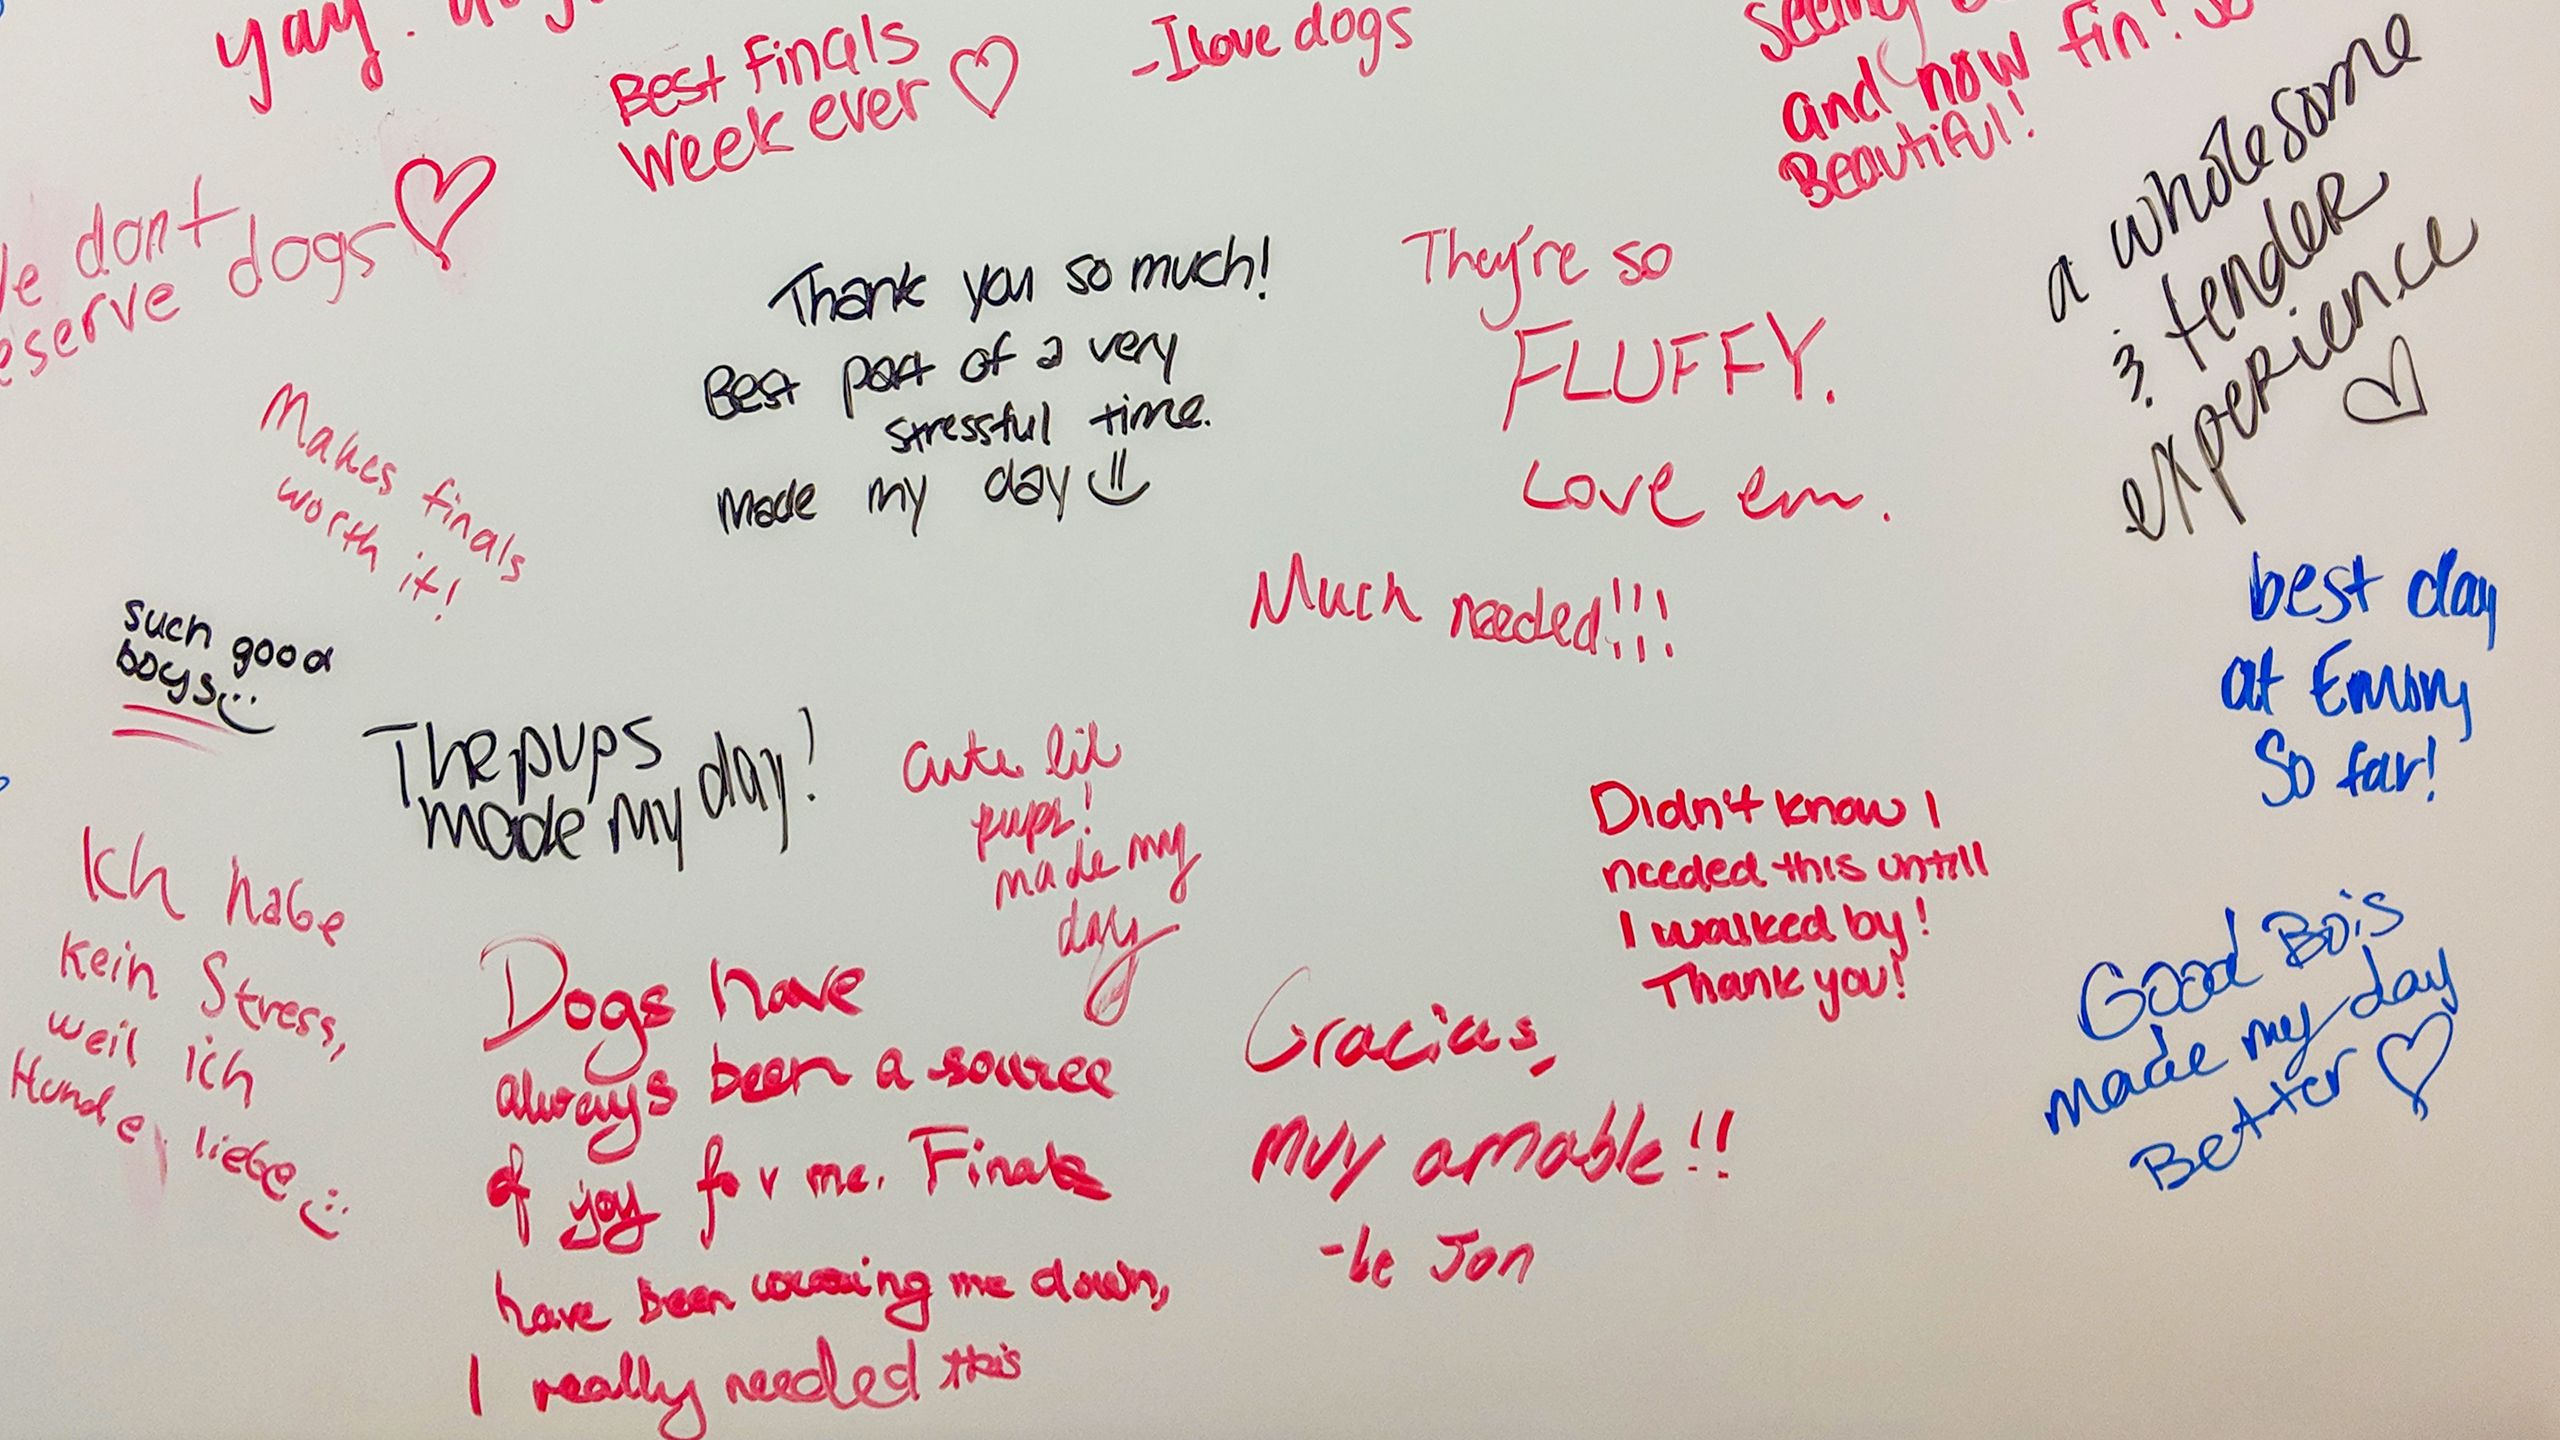 yay.
Best Finals
Week ever
-I love dogs
and now fin! So
Beautiful!
a wholesome
& tender
experience
dont
dogs
Thank you so much!
Best part of a very
stressful time.
Made my day
They're so
FLUFFY.
Love em.
Makes finals
worth it!
Much needed!!!
best day
at Emory
So far!
such good
boys
The pups
made my day!
Cute lil
pups!
made my
day
Didn't know I
needed this untill
I walked by!
Thank you!
Ich habe
kein Stress,
weil ich
Hunde liebe
Dogs have
always been a source
of joy for me. Finals
have been wearing me down,
I really needed this
Gracias,
muy amable!!
-le Jon
Good Bois
made my day
Better